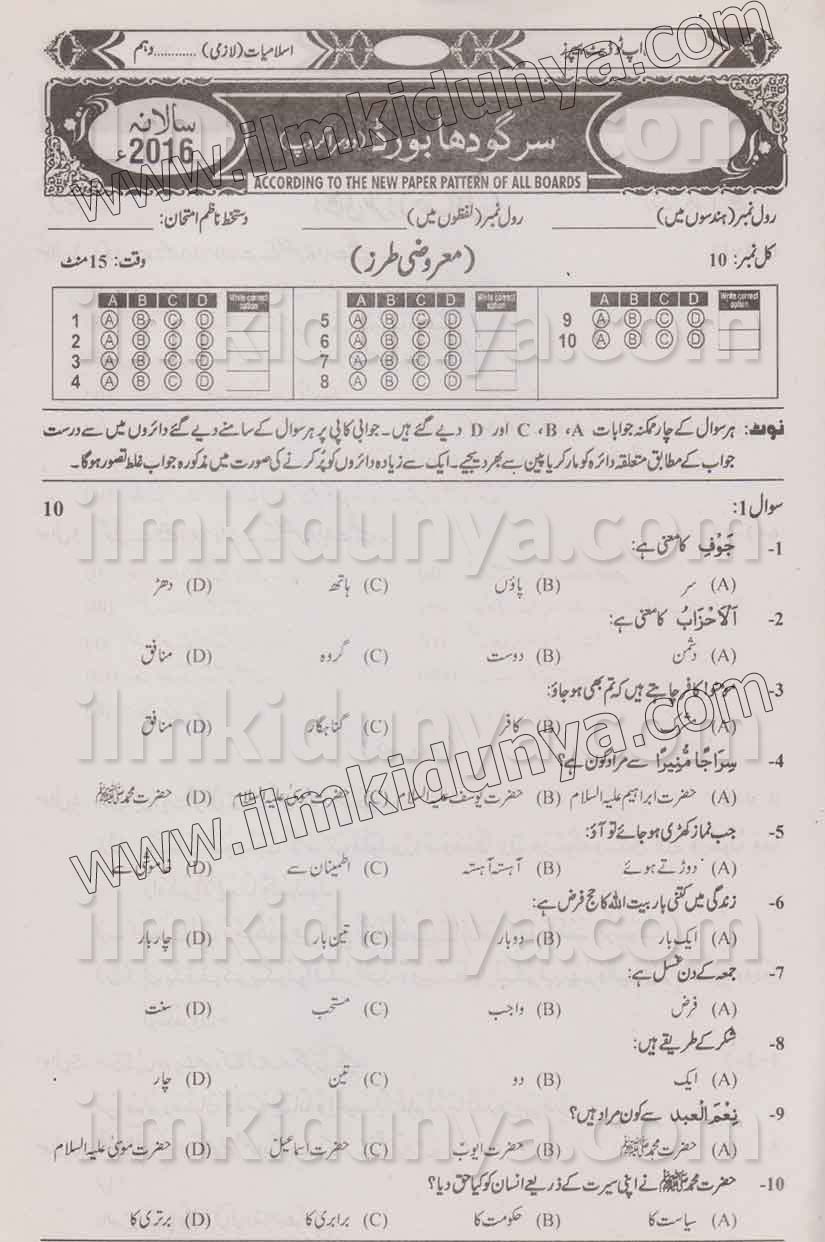 اپ ٹو ڈیٹ پیپرز
اسلامیات (لازمی) ............ دہم
سرگودھا بورڈ (دوسرا گروپ)
سالانہ
2016ء
ACCORDING TO THE NEW PAPER PATTERN OF ALL BOARDS
رول نمبر (ہندسوں میں)____________ رول نمبر (لفظوں میں)____________ دستخط ناظم امتحان: ____________
کل نمبر: 10 (معروضی طرز) وقت: 15 منٹ
A B C D Write correct option A B C D Write correct option A B C D Write correct option
1 A B C D 5 A B C D 9 A B C D
2 A B C D 6 A B C D 10 A B C D
3 A B C D 7 A B C D
4 A B C D 8 A B C D
نوٹ: ہر سوال کے چار ممکنہ جوابات A، B، C اور D دیے گئے ہیں۔ جوابی کاپی پر ہر سوال کے سامنے دیے گئے دائروں میں سے درست
جواب کے مطابق متعلقہ دائرہ کو مارکر یا پین سے بھر دیجیے۔ ایک سے زیادہ دائروں کو پُر کرنے کی صورت میں مذکورہ جواب غلط تصور ہوگا۔
سوال 1: 10
1- جَوْفِ کا معنی ہے:
(A) سر (B) پاؤں (C) ہاتھ (D) دھڑ
2- اَلْاَحْزَابُ کا معنی ہے:
(A) دشمن (B) دوست (C) گروہ (D) منافق
3- مومنو! کافر چاہتے ہیں کہ تم بھی ہو جاؤ:
(A) مشرک (B) کافر (C) گناہگار (D) منافق
4- سِرَاجًا مُّنِیرًا سے مراد کون ہے؟
(A) حضرت ابراہیم علیہ السلام (B) حضرت یوسف علیہ السلام (C) حضرت موسیٰ علیہ السلام (D) حضرت محمد ﷺ
5- جب نماز کھڑی ہو جائے تو آؤ:
(A) دوڑتے ہوئے (B) آہستہ آہستہ (C) اطمینان سے (D) خاموشی سے
6- زندگی میں کتنی بار بیت اللہ کا حج فرض ہے:
(A) ایک بار (B) دو بار (C) تین بار (D) چار بار
7- جمعہ کے دن غسل ہے:
(A) فرض (B) واجب (C) مستحب (D) سنت
8- شکر کے طریقے ہیں:
(A) ایک (B) دو (C) تین (D) چار
9- نِعْمَ الْعبد سے کون مراد ہیں؟
(A) حضرت محمد ﷺ (B) حضرت ایوبؑ (C) حضرت اسماعیلؑ (D) حضرت موسیٰ علیہ السلام
10- حضرت محمد ﷺ نے اپنی سیرت کے ذریعے انسان کو کیا حق دیا؟
(A) سیاست کا (B) حکومت کا (C) برابری کا (D) برتری کا
www.ilmkidunya.com
www.ilmkidunya.com
ilmkidunya.com
ilmkidunya.com
ilmkidunya.com
ilmkidunya.com
ilmkidunya.com
ilmkidunya.com